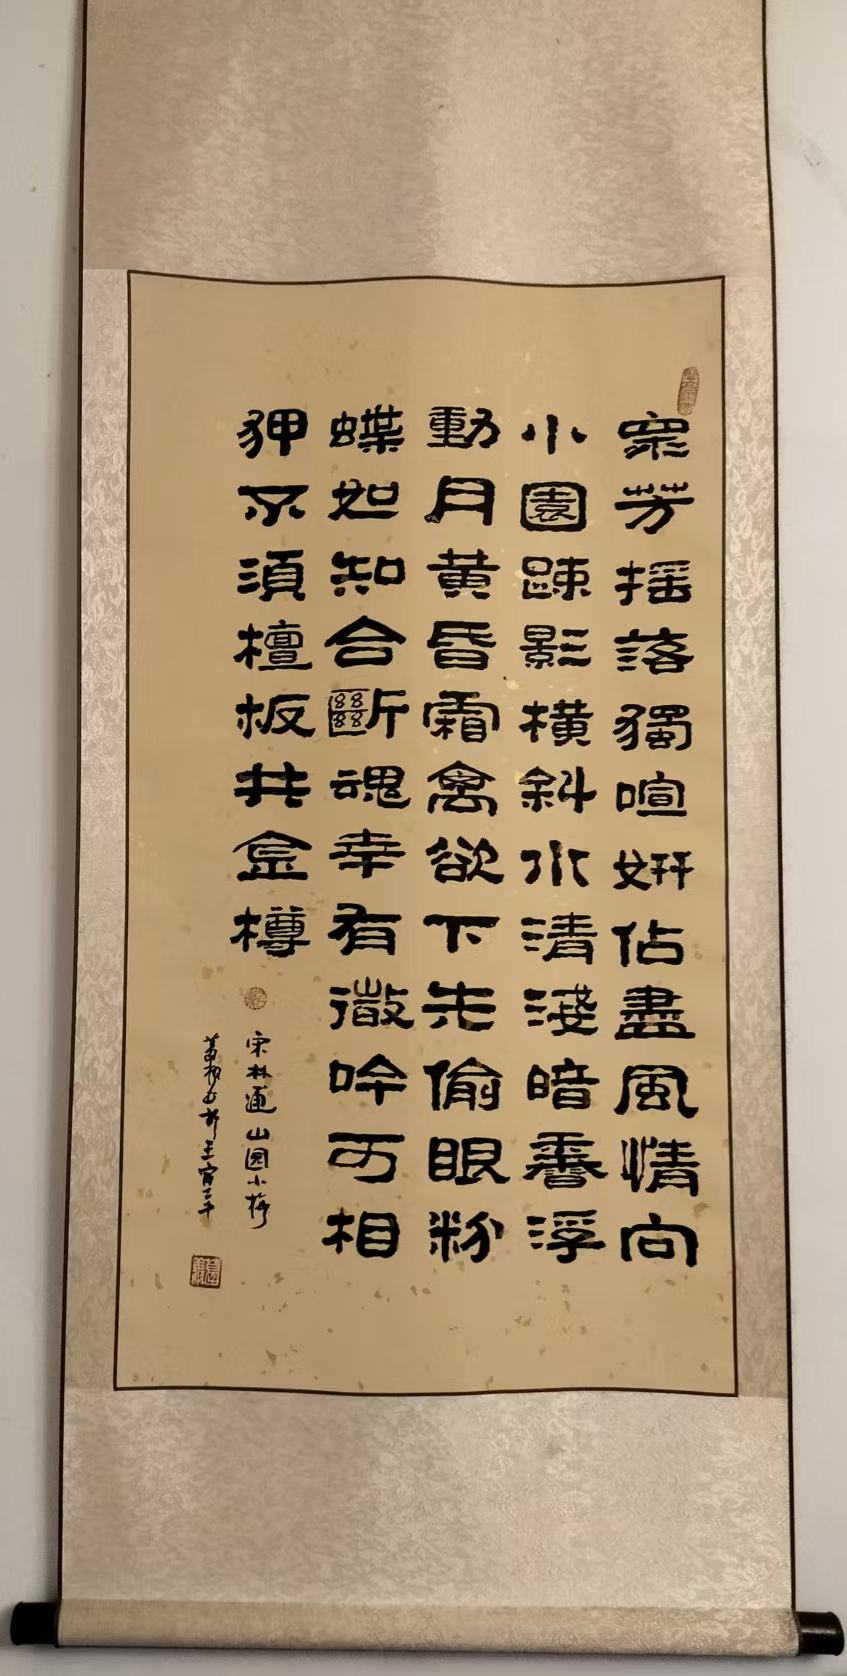 眾芳揺落獨喧妍佔盡風情向
小園踈影橫斜水清淺暗香浮
動月黃昏霜禽欲下先偷眼粉
蝶如知合斷魂幸有微吟可相
狎不須檀板共金樽
宋林逋山園小梅
壬寅